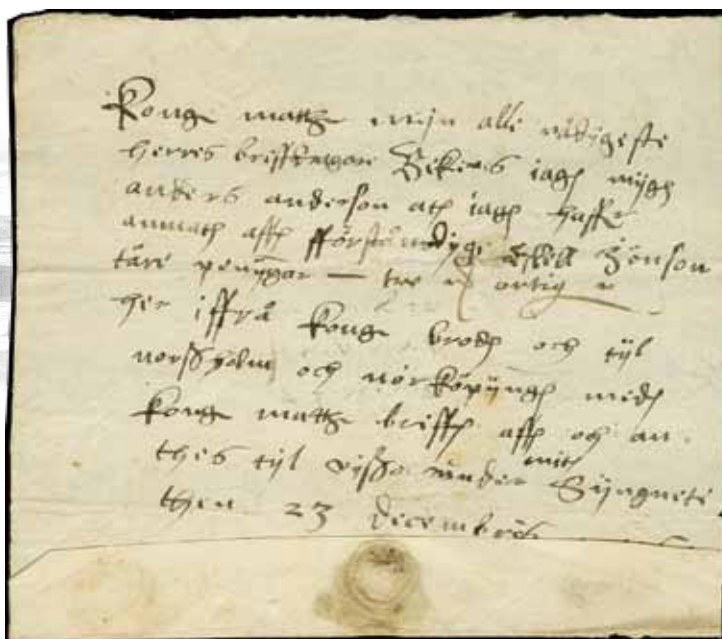 Kong matz mijn alle nådigeste
herres breffdragare Bekenes iagh mijgh
anders anderson ath iagh haffr
anmath aff förståndige Eskell Jönson
täre penijgar — tre ortig
her iffrå Kong brodh och tijl
norssholm och nörköpijngh medh
kong matz breff aff och an
thes tijl visso under mit Sijngnete
then 23 decembris